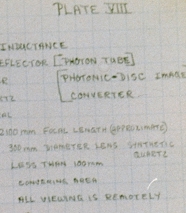 PLATE VIII
INDUCTANCE
EFLECTOR [PHOTON TUBE]
R [PHOTONIC-DISC IMAGE
RTZ CONVERTER
CAL
2100 mm FOCAL LENGTH (APPROXIMATE)
300 mm DIAMETER LENS SYNTHETIC
QUARTZ
LESS THAN 100mm
CONVERING AREA
ALL VIEWING IS REMOTELY